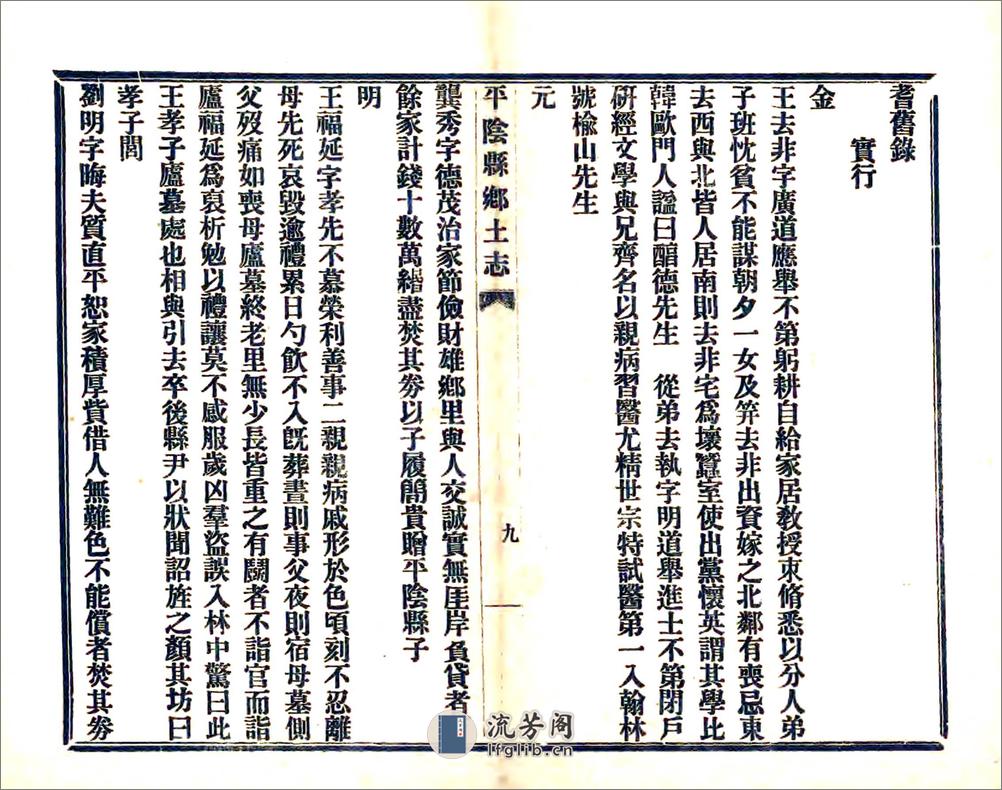 耆舊錄
實行
金
王去非字廣道應舉不第躬耕自給家居敎授束脩悉以分人弟
子班忱貧不能謀朝夕一女及筓去非出資嫁之北鄰有喪忌東
去西與北皆人居南則去非宅爲壞蠶室使出黨懷英謂其學比
韓歐門人諡曰醇德先生　從弟去執字明道舉進士不第閉戶
硏經文學與兄齊名以親病習醫尤精世宗特試醫第一入翰林
號楡山先生
元
平陰縣鄉土志
九
龔秀字德茂治家節儉財雄鄕里與人交誠實無厓岸負貸者
餘家計錢十數萬緡盡焚其券以子履簡貴贈平陰縣子
明
王福延字孝先不慕榮利善事二親親病戚形於色頃刻不忍離
母先死哀毀逾禮累日勺飮不入旣葬晝則事父夜則宿母墓側
父歿痛如喪母廬墓終老里無少長皆重之有鬬者不詣官而詣
廬福延爲哀析勉以禮讓莫不感服歲凶羣盜誤入林中驚曰此
王孝子廬墓處也相與引去卒後縣尹以狀聞詔旌之顏其坊曰
孝子閭
劉明字晦夫質直平恕家積厚貲借人無難色不能償者焚其券
流芳阁
lfglib.cn